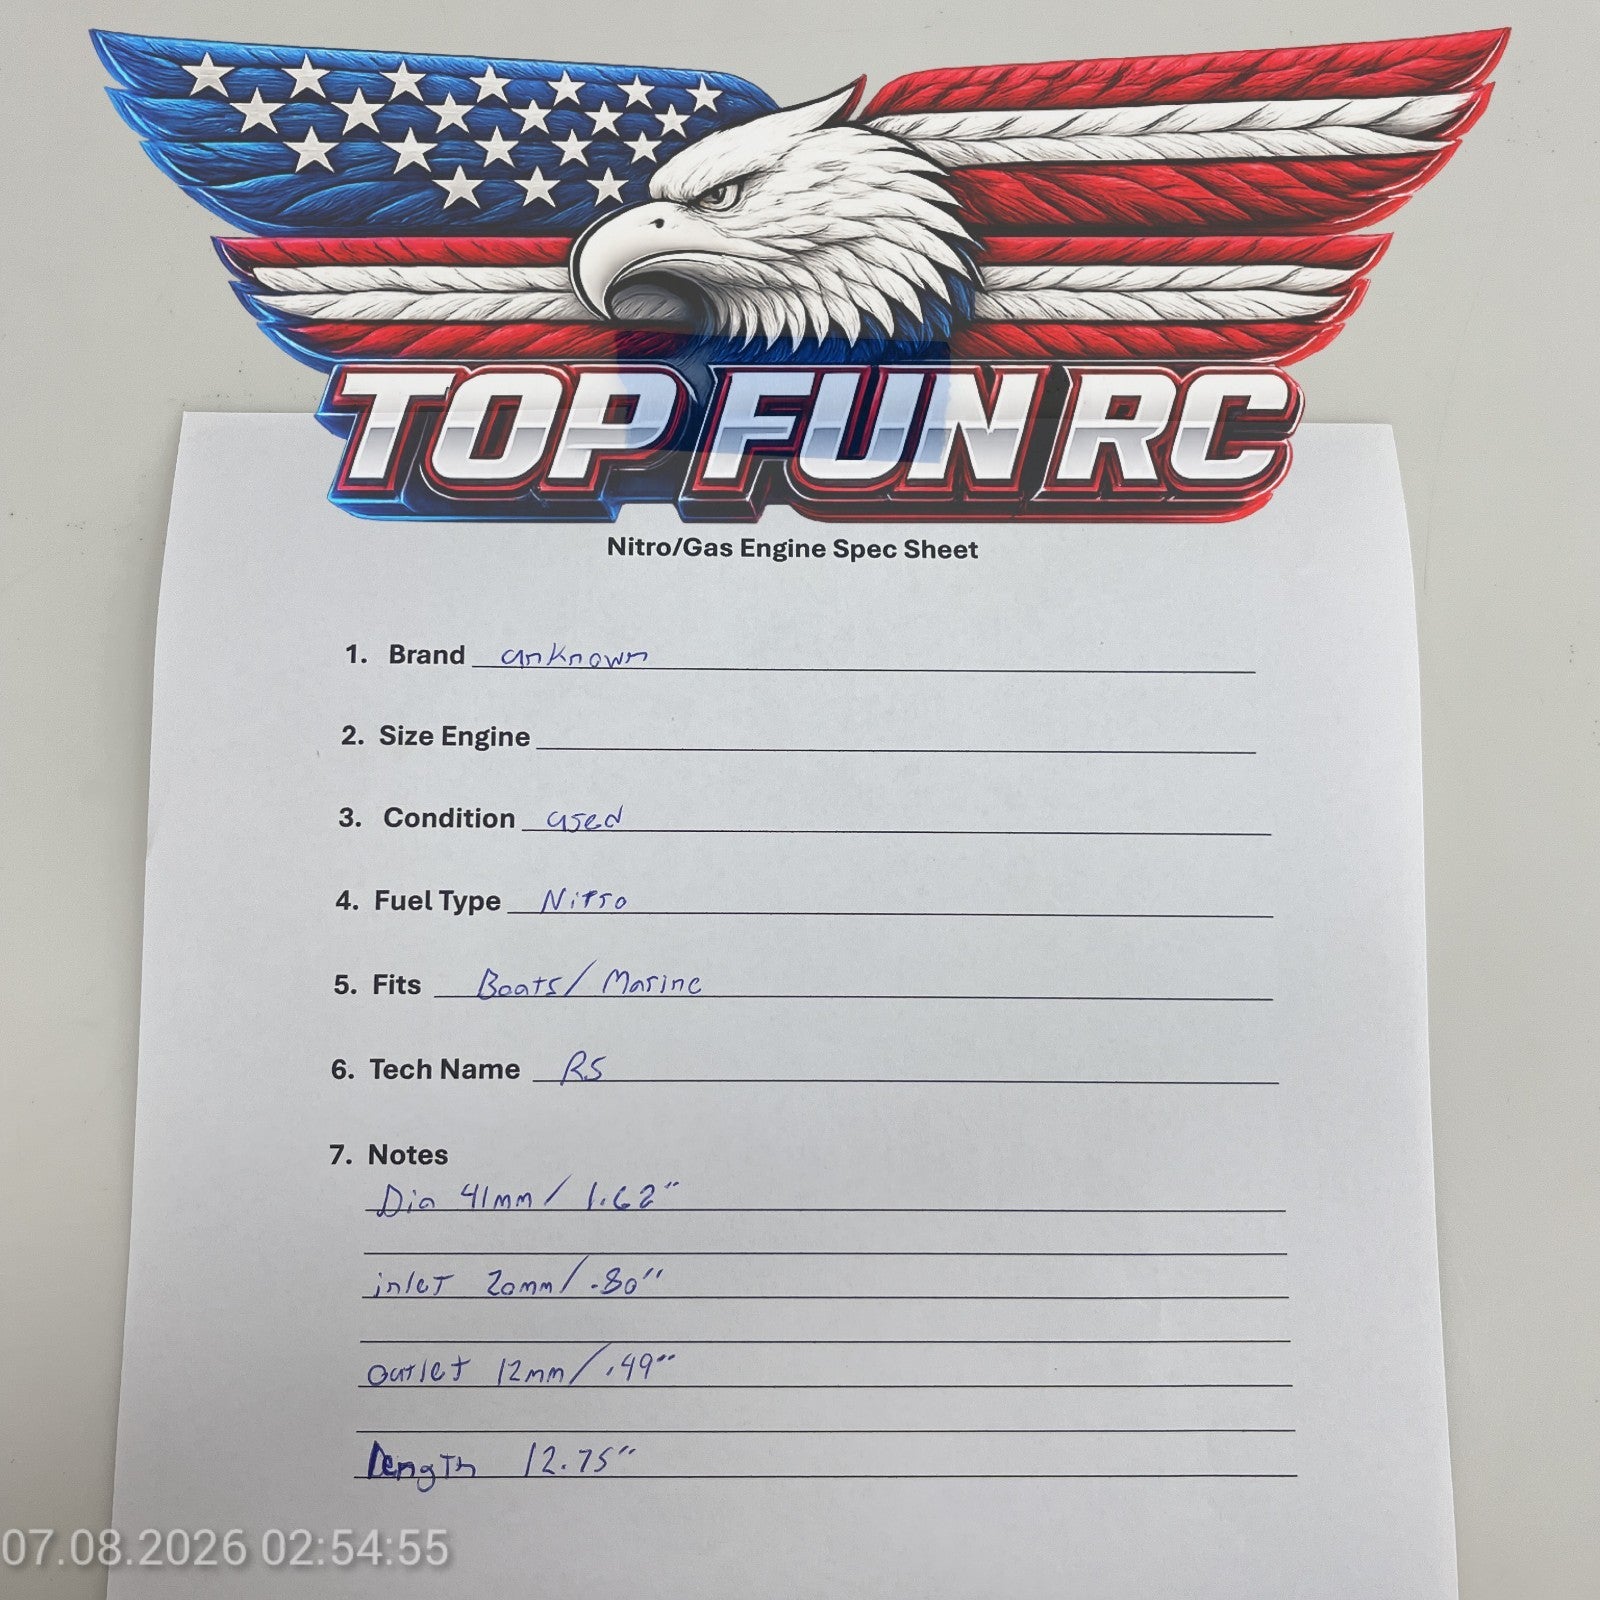 TOP FUN RC
Nitro/Gas Engine Spec Sheet
1. Brand unknown
2. Size Engine
3. Condition used
4. Fuel Type Nitro
5. Fits Boats/ Marine
6. Tech Name RS
7. Notes
Dia 41mm/ 1.62"
inlet 20mm/ .80"
outlet 12mm/ .49"
Length 12.75"
07.08.2026 02:54:55